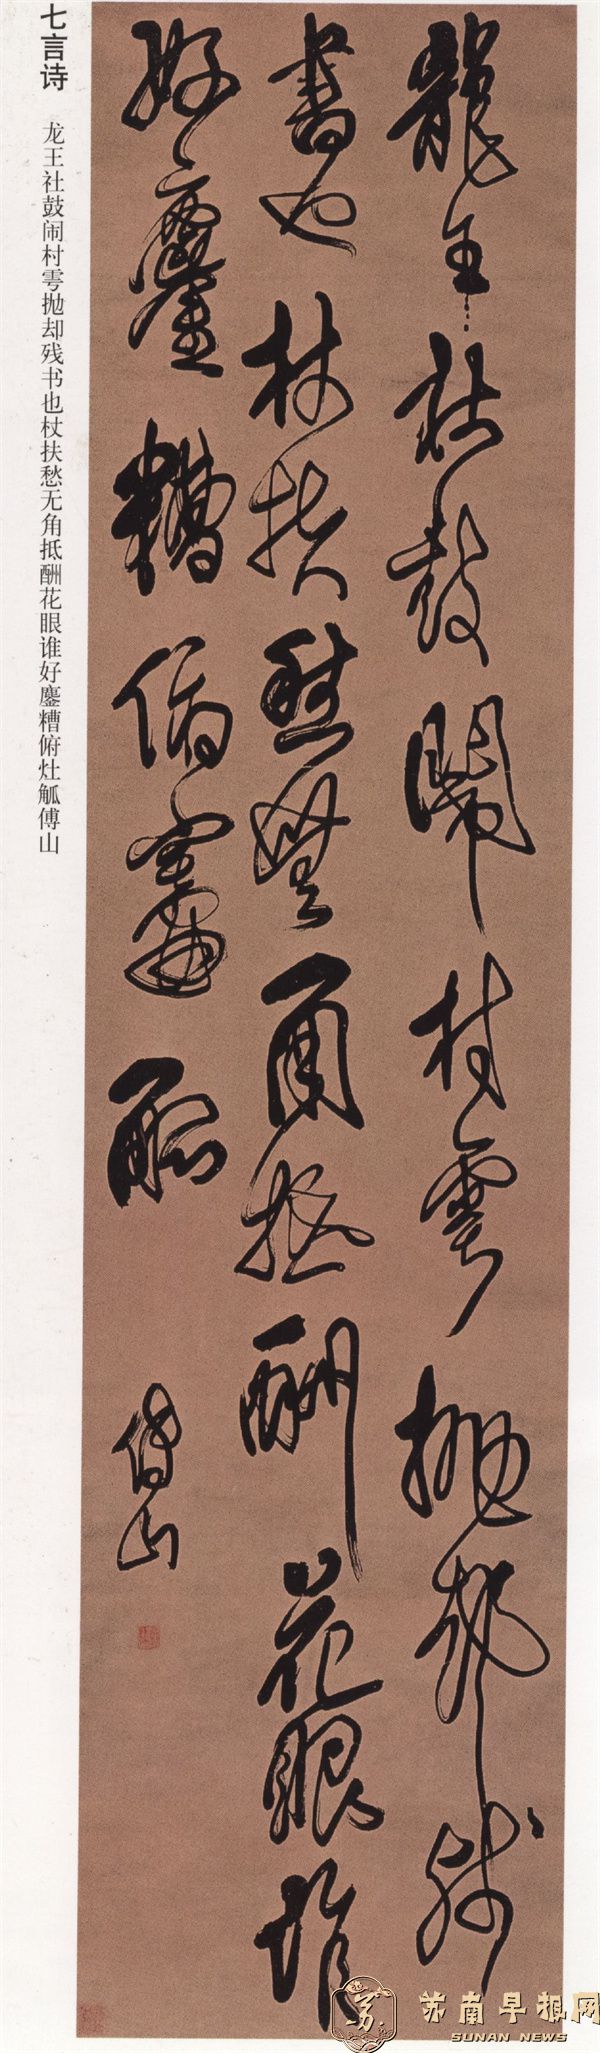 龍王社鼓鬧村雩拋却殘
書也杖扶愁無角抵酬花眼誰
好鏖糟俯竈觚
傅山
七言诗
龙王社鼓闹村雩抛却残书也杖扶愁无角抵酬花眼谁好鏖糟俯灶觚傅山
苏南早报网
SUNAN NEWS